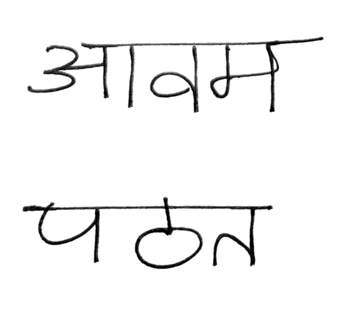 आवम
पठत